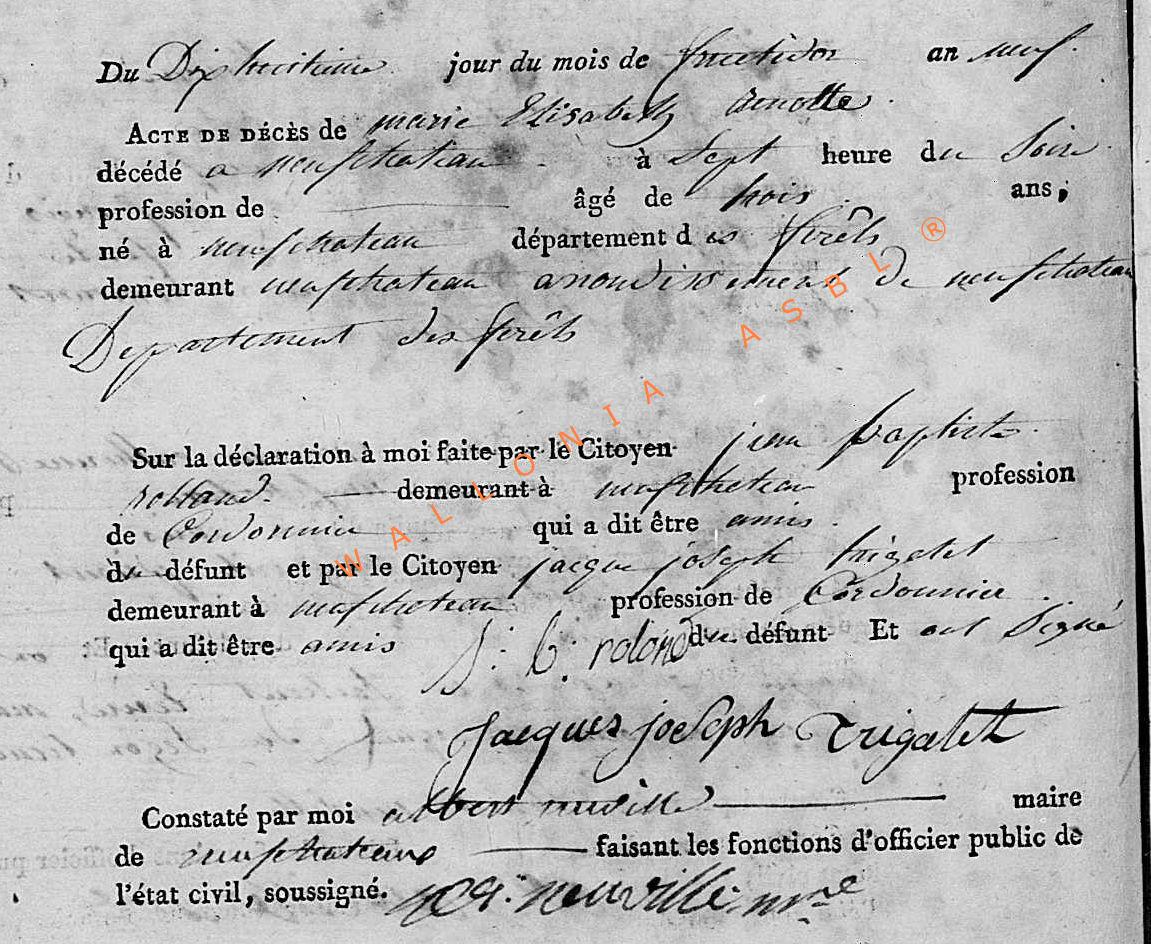 Du Dixhuitieme jour du mois de fructidor an neuf.
ACTE DE DÉCÈS de marie Elisabeth
décédé a neufchateau à Sept heure du Soire
profession de âgé de trois ans,
né à neufchateau département des forêts
demeurant neufchateau arrondissement de neufchateau
Departement des forêts
Sur la déclaration à moi faite par le Citoyen jean baptiste
rolland demeurant à neufchateau profession
de Cordonnier qui a dit être amis
du défunt et par le Citoyen jacque joseph trigalet
demeurant à neufchateau profession de Cordonnier
qui a dit être amis du défunt Et ont Signé
J: b: roland
Jacques joseph Trigalet
Constaté par moi albert neuville maire
de neufchateau faisant les fonctions d'officier public de
l'état civil, soussigné. neuville mre
WALLONIA ASBL ®